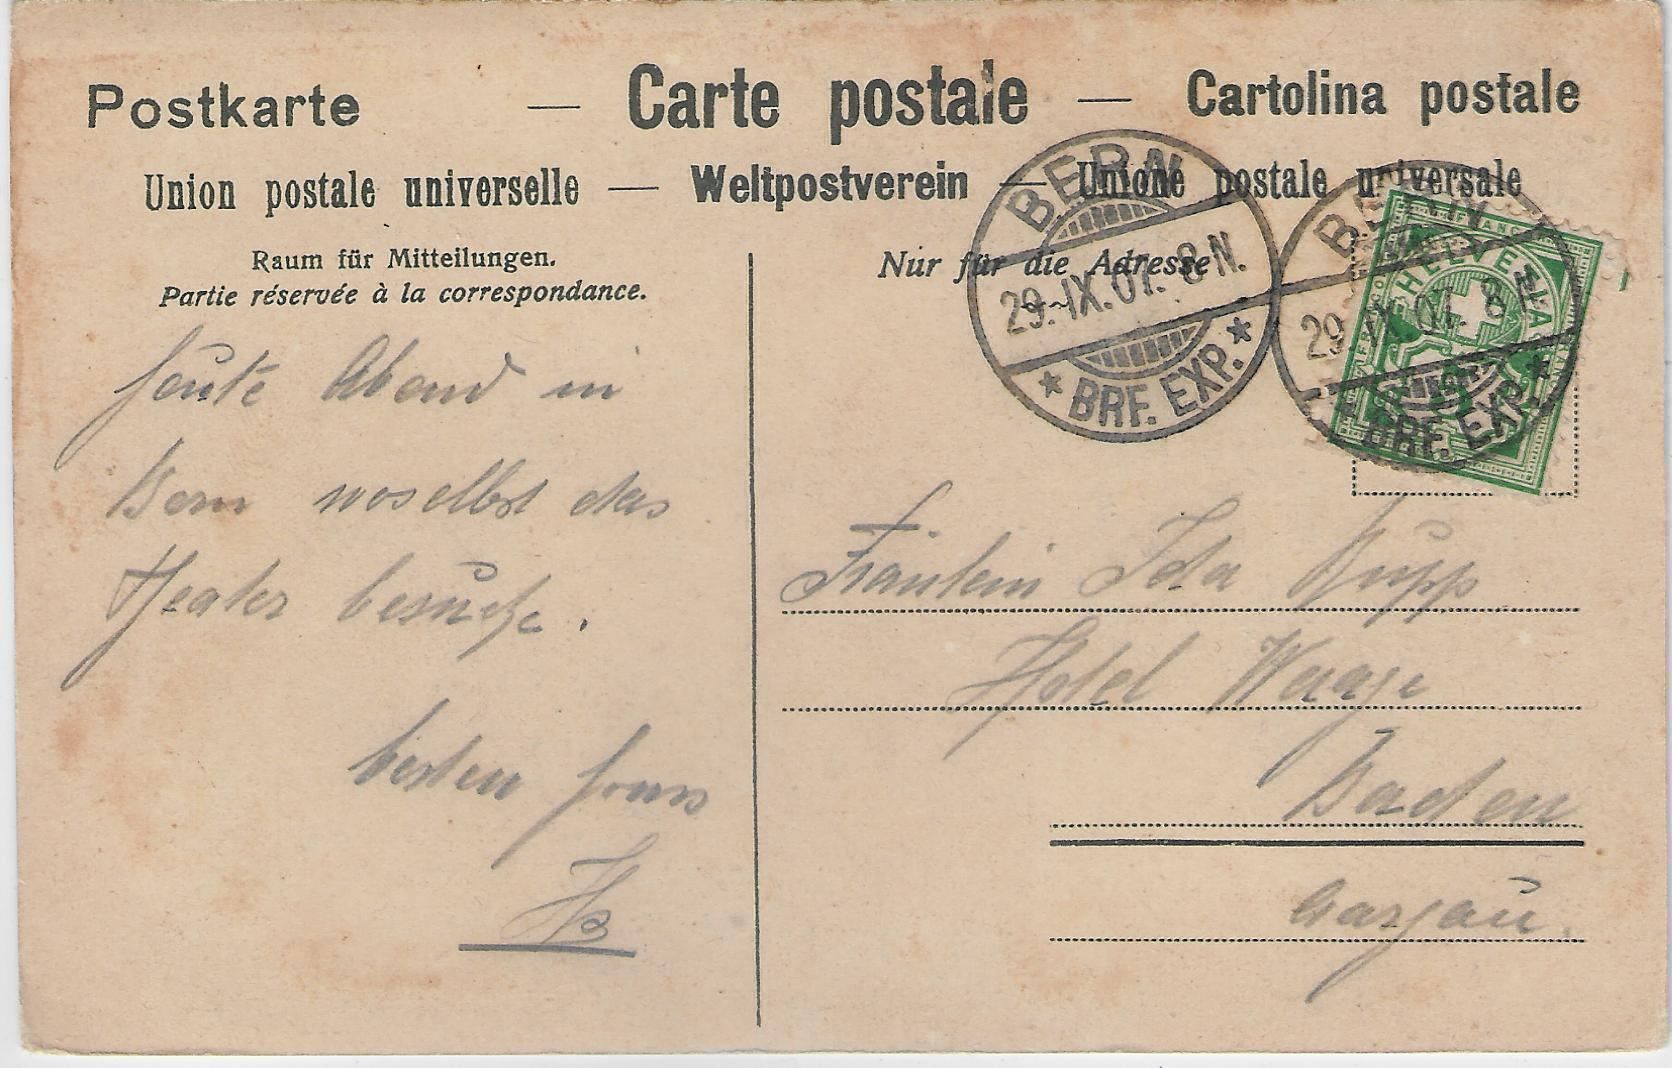 Postkarte — Carte postale — Cartolina postale
Union postale universelle — Weltpostverein — Unione postale universale
Raum für Mitteilungen.
Partie réservée à la correspondance.
Nur für die Adresse
BERN
29.IX.07. 8 N.
* BRF. EXP. *
BERN
29.IX.07. 8 N.
* BRF. EXP. *
FRANCO
HELVETIA
heute Abend in
Bern woselbst das
Theater besuche.
besten Gruss
Fräulein Ida Rupp
Hotel Waage
Baden
Aargau.